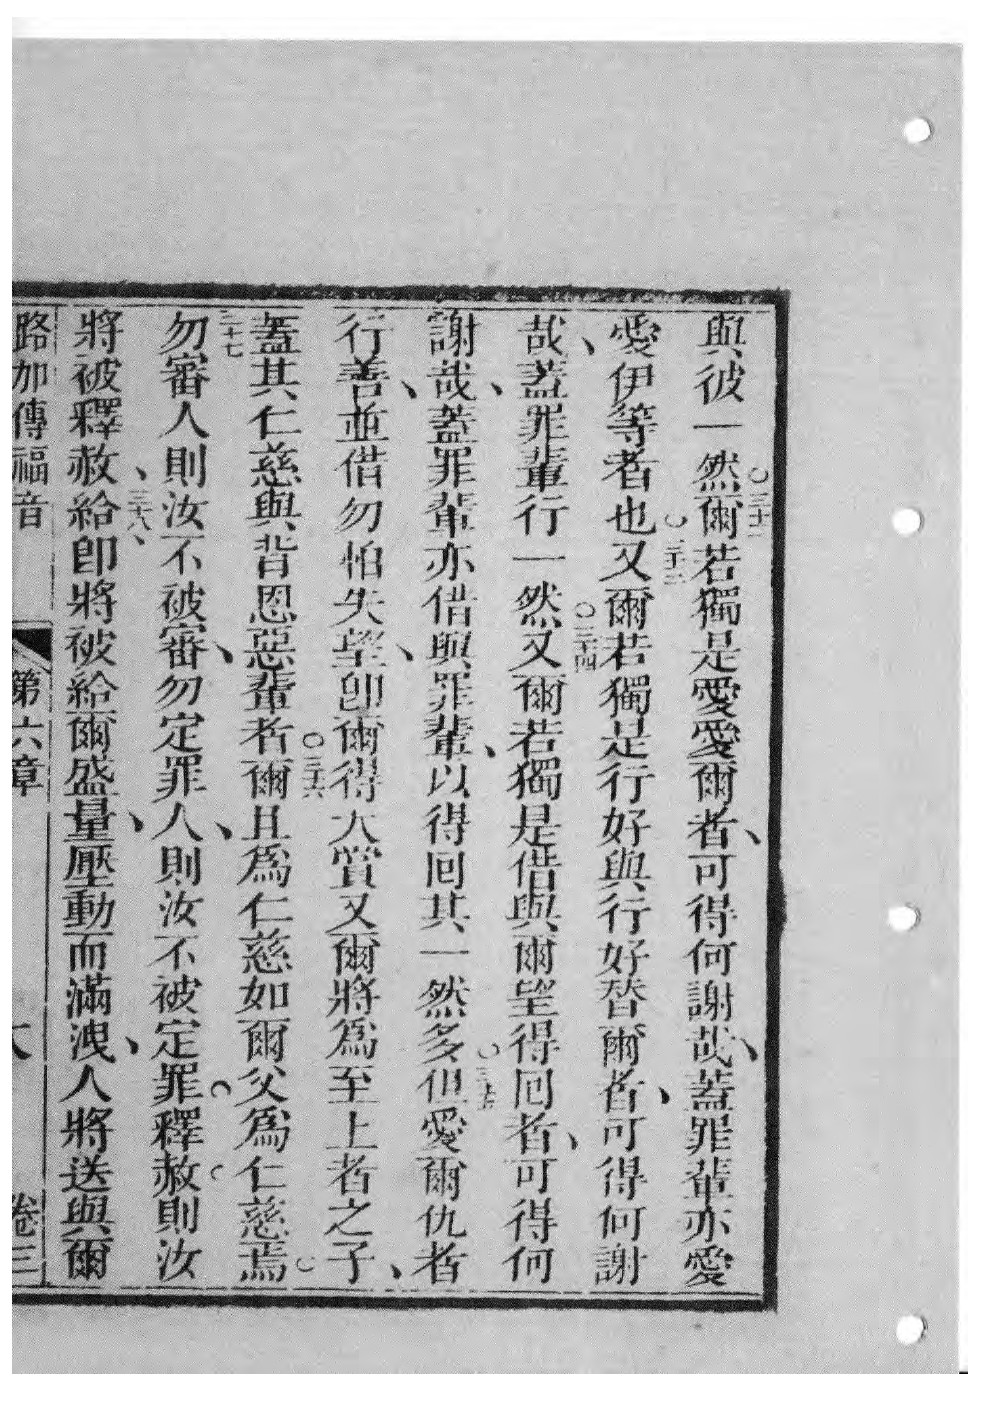 與彼一然○三十二爾若獨是愛愛爾者、可得何謝哉、蓋罪輩亦愛
愛伊等者也○三十三又爾若獨是行好與行好替爾者、可得何謝
哉、蓋罪輩行一然○三十四又爾若獨是借與爾望得囘者、可得何
謝哉、蓋罪輩亦借與罪輩、以得囘其一然多○三十五但愛爾仇者
行善、並借勿怕失望、卽爾得大賞又爾將為至上者之子、
蓋其仁慈與背恩惡輩者○三十六爾且為仁慈如爾父為仁慈焉○
三十七勿審人則汝不被審、勿定罪人、則汝不被定罪○釋赦○則汝
將被釋赦、三十八給、卽將被給爾盛量、壓動而滿洩、人將送與爾
路加傳福音 第六章 大 卷三